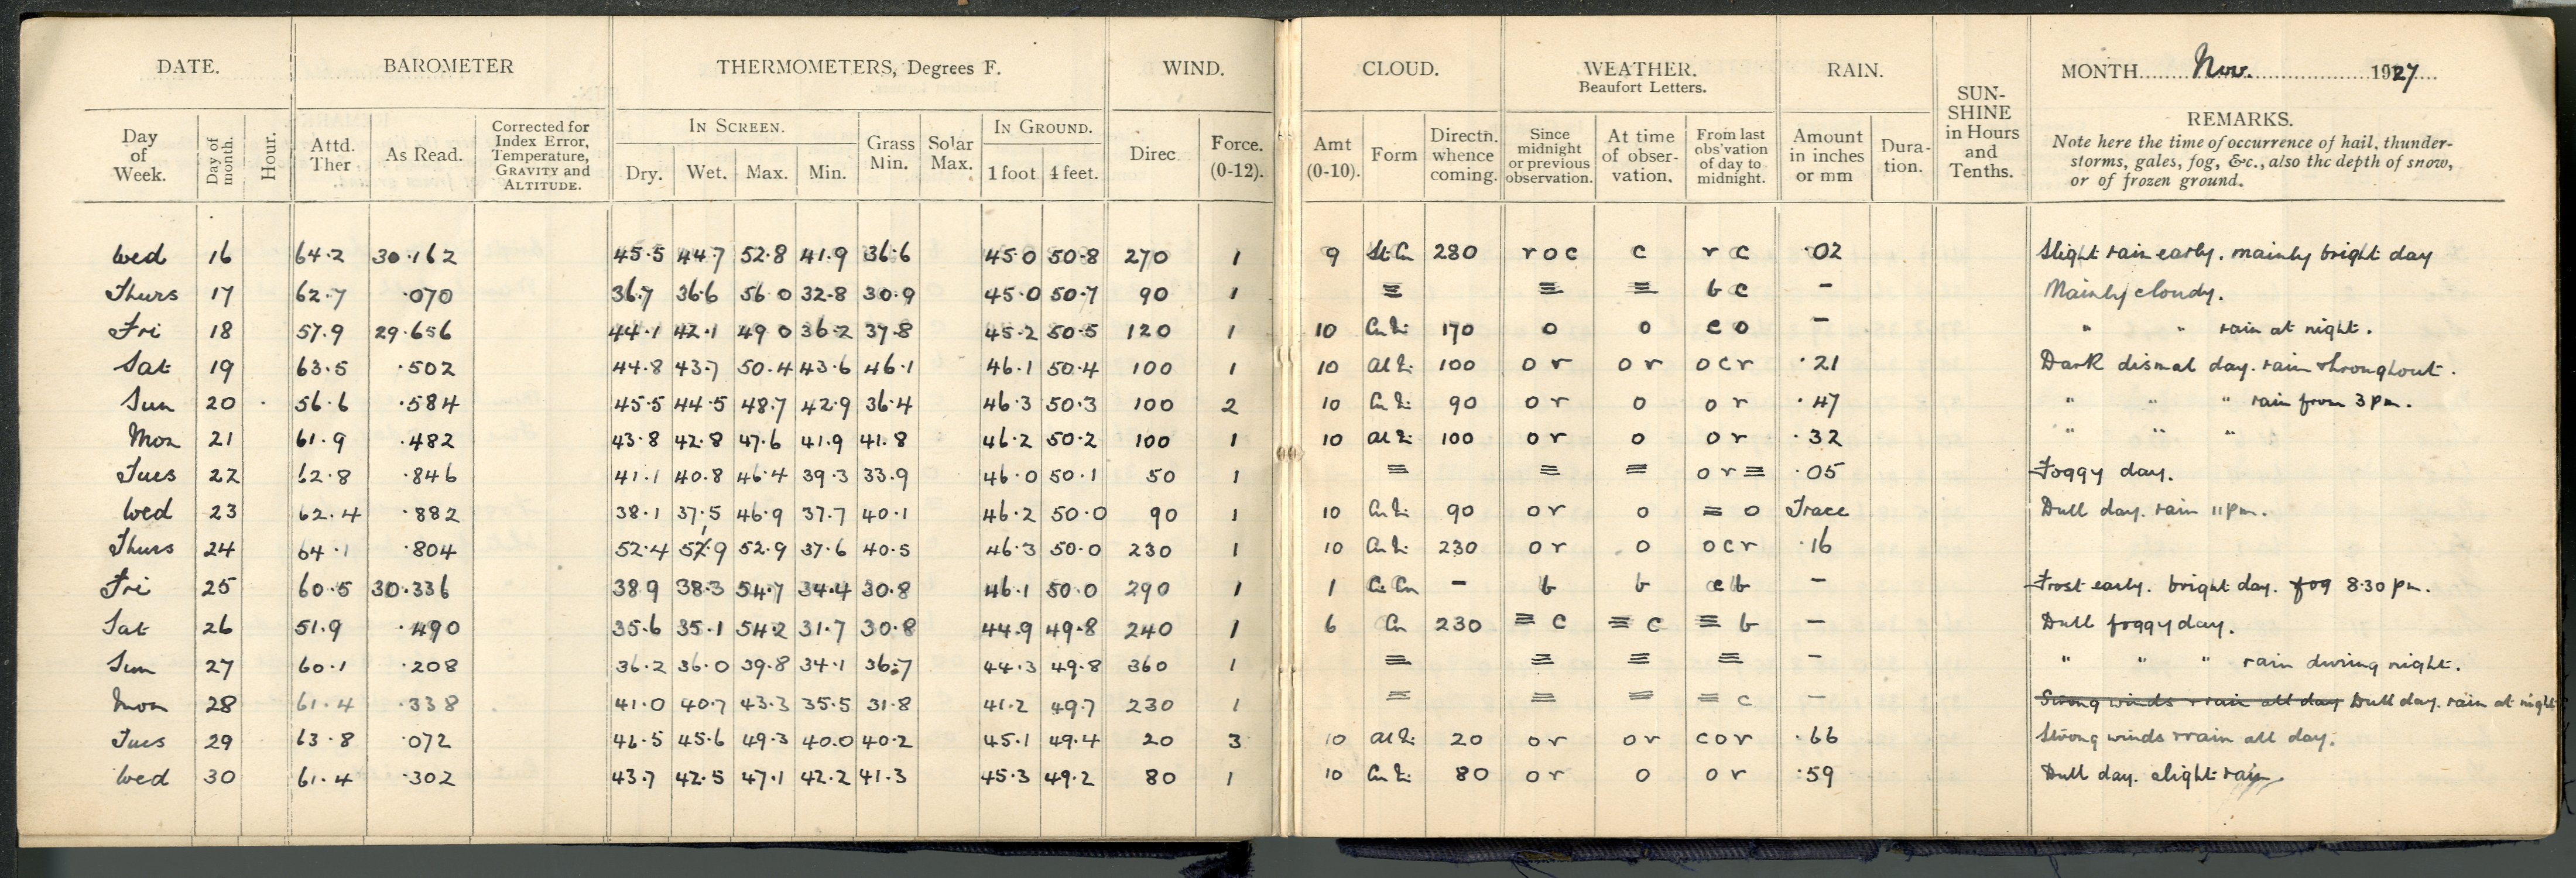 DATE. BAROMETER THERMOMETERS, Degrees F. WIND. CLOUD. WEATHER. Beaufort Letters. RAIN. SUN-SHINE in Hours and Tenths. MONTH Nov. 1927
REMARKS.
Note here the time of occurrence of hail, thunder-
storms, gales, fog, &c., also the depth of snow,
or of frozen ground.
Day of Week. Day of month. Hour. Attd. Ther As Read. Corrected for Index Error, Temperature, GRAVITY and ALTITUDE. IN SCREEN. Dry. Wet. Max. Min. Grass Min. Solar Max. IN GROUND. 1 foot 4 feet. Direc Force. (0-12). Amt (0-10). Form Directn. whence coming. Since midnight or previous observation. At time of obser-vation. From last obs'vation of day to midnight. Amount in inches or mm Dura-tion.
Wed 16 64.2 30.162 45.5 44.7 52.8 41.9 36.6 45.0 50.8 270 1 9 St Cu 280 r o c c r c .02 Slight rain early. mainly bright day
Thurs 17 62.7 .070 36.7 36.6 56.0 32.8 30.9 45.0 50.7 90 1 ≡ ≡ ≡ b c – Mainly cloudy.
Fri 18 57.9 29.656 44.1 42.1 49.0 36.2 37.8 45.2 50.5 120 1 10 Cu Ni 170 o o c o – " " rain at night.
Sat 19 63.5 .502 44.8 43.7 50.4 43.6 46.1 46.1 50.4 100 1 10 100 o r o r o c r .21 Dark dismal day. rain throughout.
Sun 20 56.6 .584 45.5 44.5 48.7 42.9 36.4 46.3 50.3 100 2 10 Cu Ni 90 o r o o r .47 " " " rain from 3 pm.
Mon 21 61.9 .482 43.8 42.8 47.6 41.9 41.8 46.2 50.2 100 1 10 100 o r o o r .32 " " "
Tues 22 62.8 .846 41.1 40.8 46.4 39.3 33.9 46.0 50.1 50 1 ≡ ≡ ≡ o r ≡ .05 Foggy day.
Wed 23 62.4 .882 38.1 37.5 46.9 37.7 40.1 46.2 50.0 90 1 10 Cu Ni 90 o r o ≡ o Trace Dull day. rain 11 pm.
Thurs 24 64.1 .804 52.4 51.9 52.9 37.6 40.5 46.3 50.0 230 1 10 Cu Ni 230 o r o o c r .16
Fri 25 60.5 30.336 38.9 38.3 54.7 34.4 30.8 46.1 50.0 290 1 1 Ci Cu – b b c b – Frost early. bright day. fog 8.30 pm.
Sat 26 51.9 .490 35.6 35.1 54.2 31.7 30.8 44.9 49.8 240 1 6 Cu 230 ≡ c ≡ c ≡ b – Dull foggy day.
Sun 27 60.1 .208 36.2 36.0 39.8 34.1 36.7 44.3 49.8 360 1 ≡ ≡ ≡ ≡ – " " " rain during night.
Mon 28 61.4 .338 41.0 40.7 43.3 35.5 31.8 41.2 49.7 230 1 ≡ ≡ ≡ ≡ c – Strong winds & rain all day Dull day. rain at night
Tues 29 63.8 .072 46.5 45.6 49.3 40.0 40.2 45.1 49.4 20 3 10 20 o r o r c o r .66 Strong winds & rain all day.
Wed 30 61.4 .302 43.7 42.5 47.1 42.2 41.3 45.3 49.2 80 1 10 Cu Ni 80 o r o o r .59 Dull day. slight rain